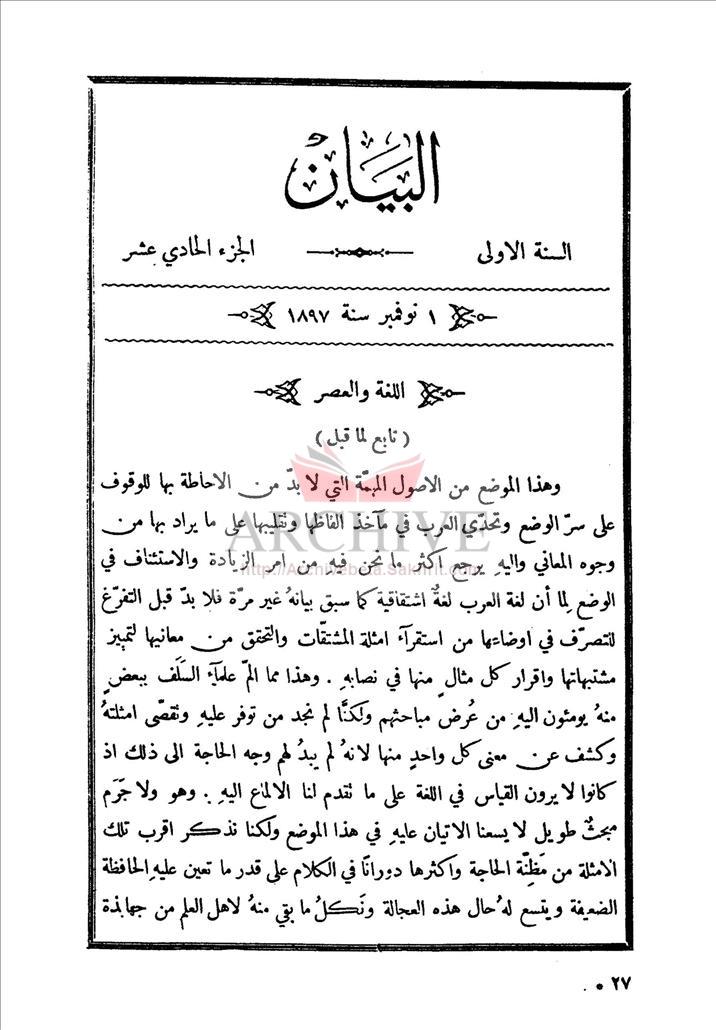 البيان
السنة الاولى الجزء الحادي عشر
١ نوفمبر سنة ١٨٩٧
اللغة والعصر
( تابع لما قبل )
وهذا الموضع من الاصول المهمّة التي لا بدّ من الاحاطة بها للوقوف
على سرّ الوضع وتحدّي العرب في مآخذ الفاظها وتقليبها على ما يراد بها من
وجوه المعاني واليهِ يرجع اكثر ما نحن فيهِ من امر الزيادة والاستئناف في
الوضع لِما أن لغة العرب لغةٌ اشتقاقية كما سبق بيانهُ غير مرّة فلا بدّ قبل التفرّغ
للتصرّف في اوضاعها من استقرآء امثلة المشتقات والتحقق من معانيها لتمييز
مشتبهاتها واقرار كل مثالٍ منها في نصابهِ . وهذا مما المّ علمآء السَلَف ببعضٍ
منهُ يومئون اليهِ من عُرض مباحثهم ولكنّا لم نجد من توفر عليهِ وتقصّى امثلتهُ
وكشف عن معنى كل واحدٍ منها لانهُ لم يبدُ لهم وجه الحاجة الى ذلك اذ
كانوا لا يرون القياس في اللغة على ما تقدم لنا الالماع اليهِ . وهو ولا جَرَم
مبحثٌ طويل لا يسعنا الاتيان عليهِ في هذا الموضع ولكنا نذكر اقرب تلك
الامثلة من مَظِنّة الحاجة واكثرها دورانًا في الكلام على قدر ما تعين عليهِ الحافظة
الضعيفة ويتسع لهُ حال هذه العجالة ونَكِلُ ما بقي منهُ لاهل العلم من جهابذة
ARCHIVE
http://Archivebeta.Sakhrit.com
٢٧ * .